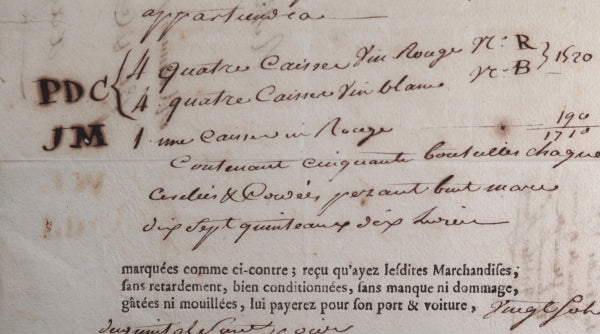 appartiendra
PDC { 4 quatre Caisses Vin Rouge Nº: R } 1520
4 quatre Caisses Vin blanc Nº: B
JM 1 une Caisse vin Rouge 190
1710
Contenant cinquante bouteilles chaque
& Cordées pezant brut marc
dix sept quinteaux dix Livres
marquées comme ci-contre ; reçu qu'ayez leſdites Marchandiſes,
ſans retardement, bien conditionnées, ſans manque ni dommage,
gâtées ni mouillées, lui payerez pour ſon port & voiture, Vingt Sols